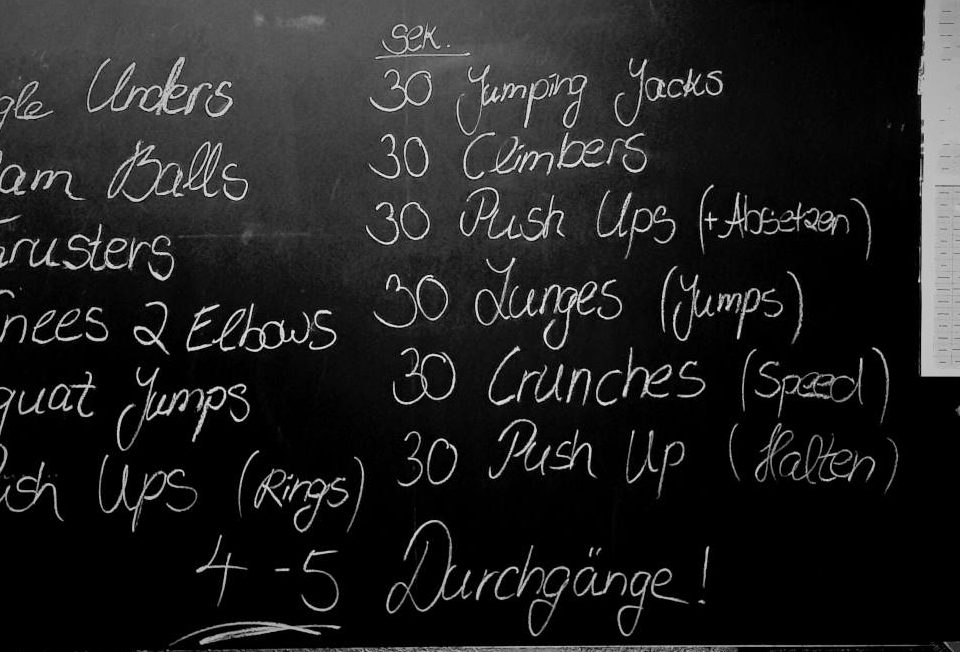 sek.
gle Unders
30 Jumping Jacks
lam Balls
30 Climbers
rusters
30 Push Ups (+Absetzen)
nees 2 Elbows
30 Lunges (Jumps)
quat Jumps
30 Crunches (Speed)
ush Ups (Rings)
30 Push Up (Halten)
4-5 Durchgänge!